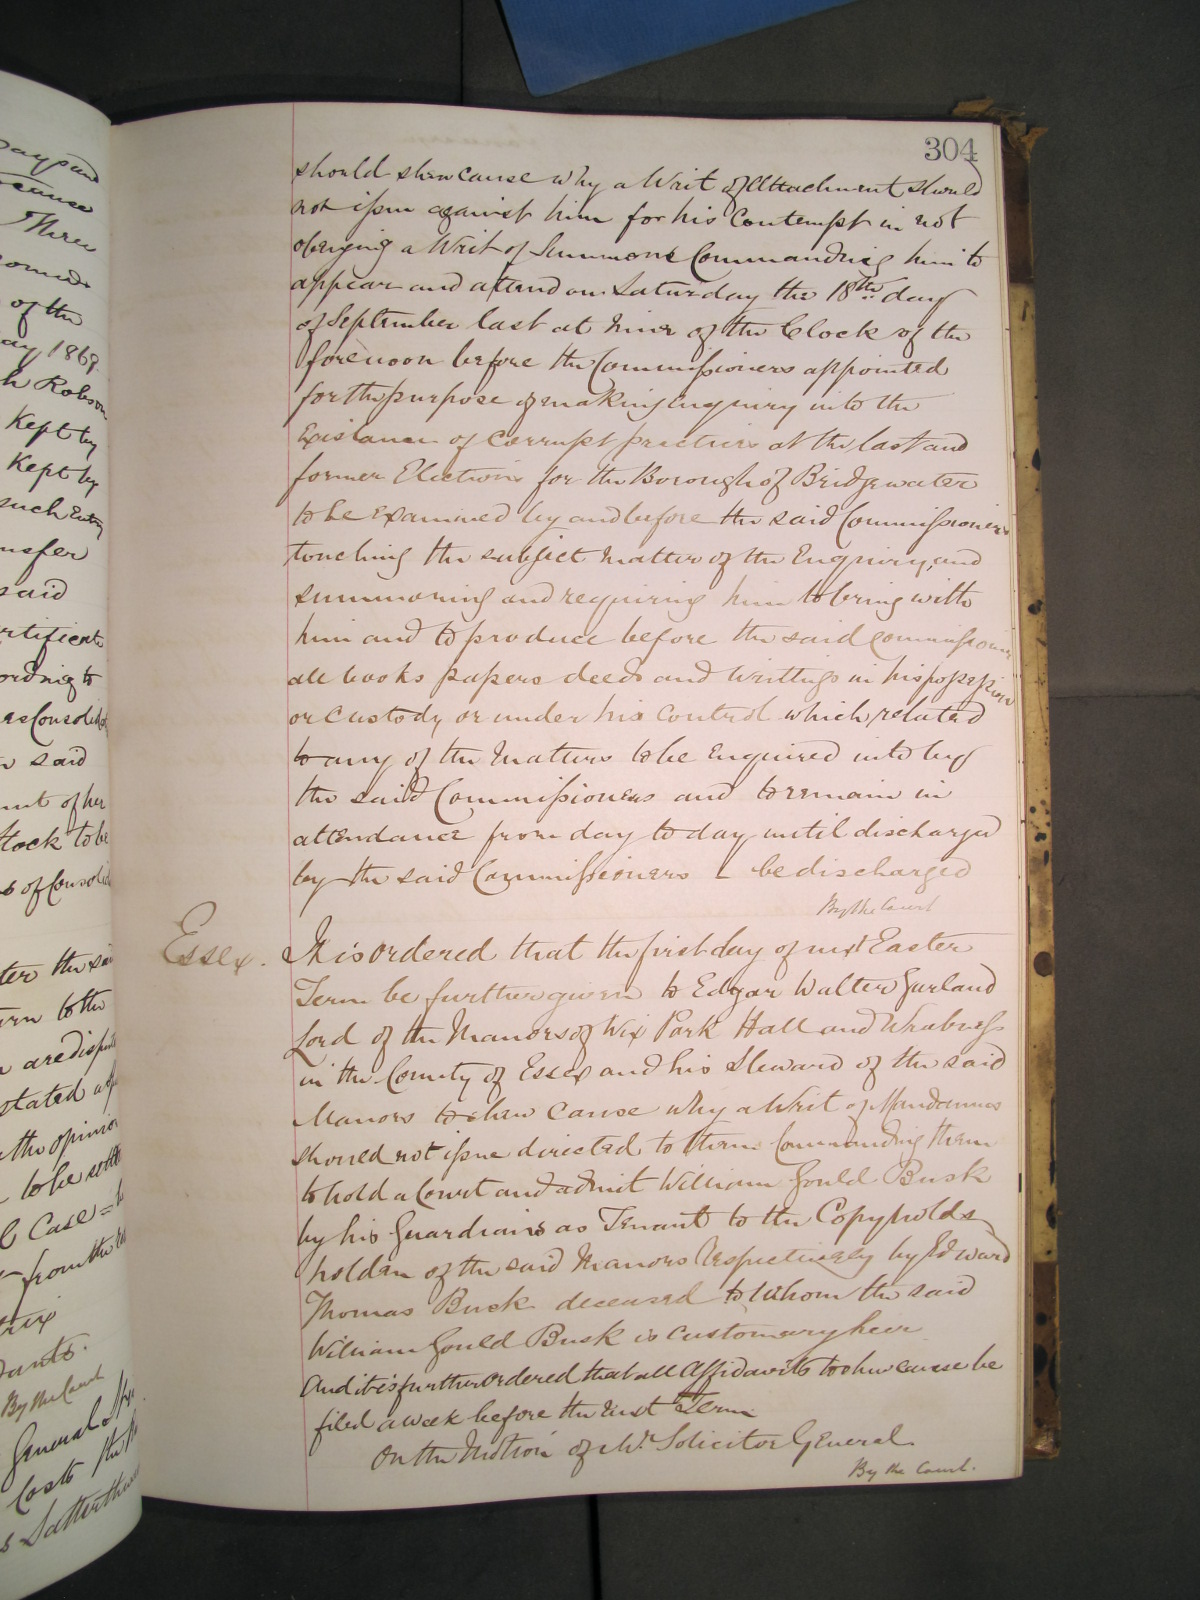 304
should shew cause why a Writ of Attachment should
not issue against him for his Contempt in not
obeying a Writ of Summons Commanding him to
appear and attend on Saturday the 18th day
of September last at Nine of the Clock of the
forenoon before the Commissioners appointed
for the purpose of making Enquiry into the
Existence of Corrupt practices at the last and
former Elections for the Borough of Bridgewater
to be Examined by and before the said Commissioners
touching the subject Matter of the Enquiry, and
summoning and requiring him to bring with
him and to produce before the said Commissioners
all books papers deeds and writings in his possession
or custody or under his control which related
to any of the Matters to be Enquired into by
the said Commissioners and to remain in
attendance from day to day until discharged
by the said Commissioners – be discharged
By the Court
Essex. It is ordered that the first day of next Easter
Term be further given to Edgar Walter Garland
Lord of the Manors of Wix Park Hall and Wrabness
in the County of Essex and his Steward of the said
Manors to shew Cause why a Writ of Mandamus
should not issue directed to them Commanding them
to hold a Court and admit William Gould Busk
by his Guardians as Tenant to the Copyholds
holden of the said Manors respectively by Edward
Thomas Busk deceased to whom the said
William Gould Busk is customary heir
And it is further ordered that all Affidavits to shew cause be
filed a week before the next Term
On the Motion of Mr. Solicitor General
By the Court.
of the
ay 1869
h Robson
Kept by
Kept by
such Entry
nsfer
said
said
of her
tock to be
of Consolid
By the Court
General
Costs